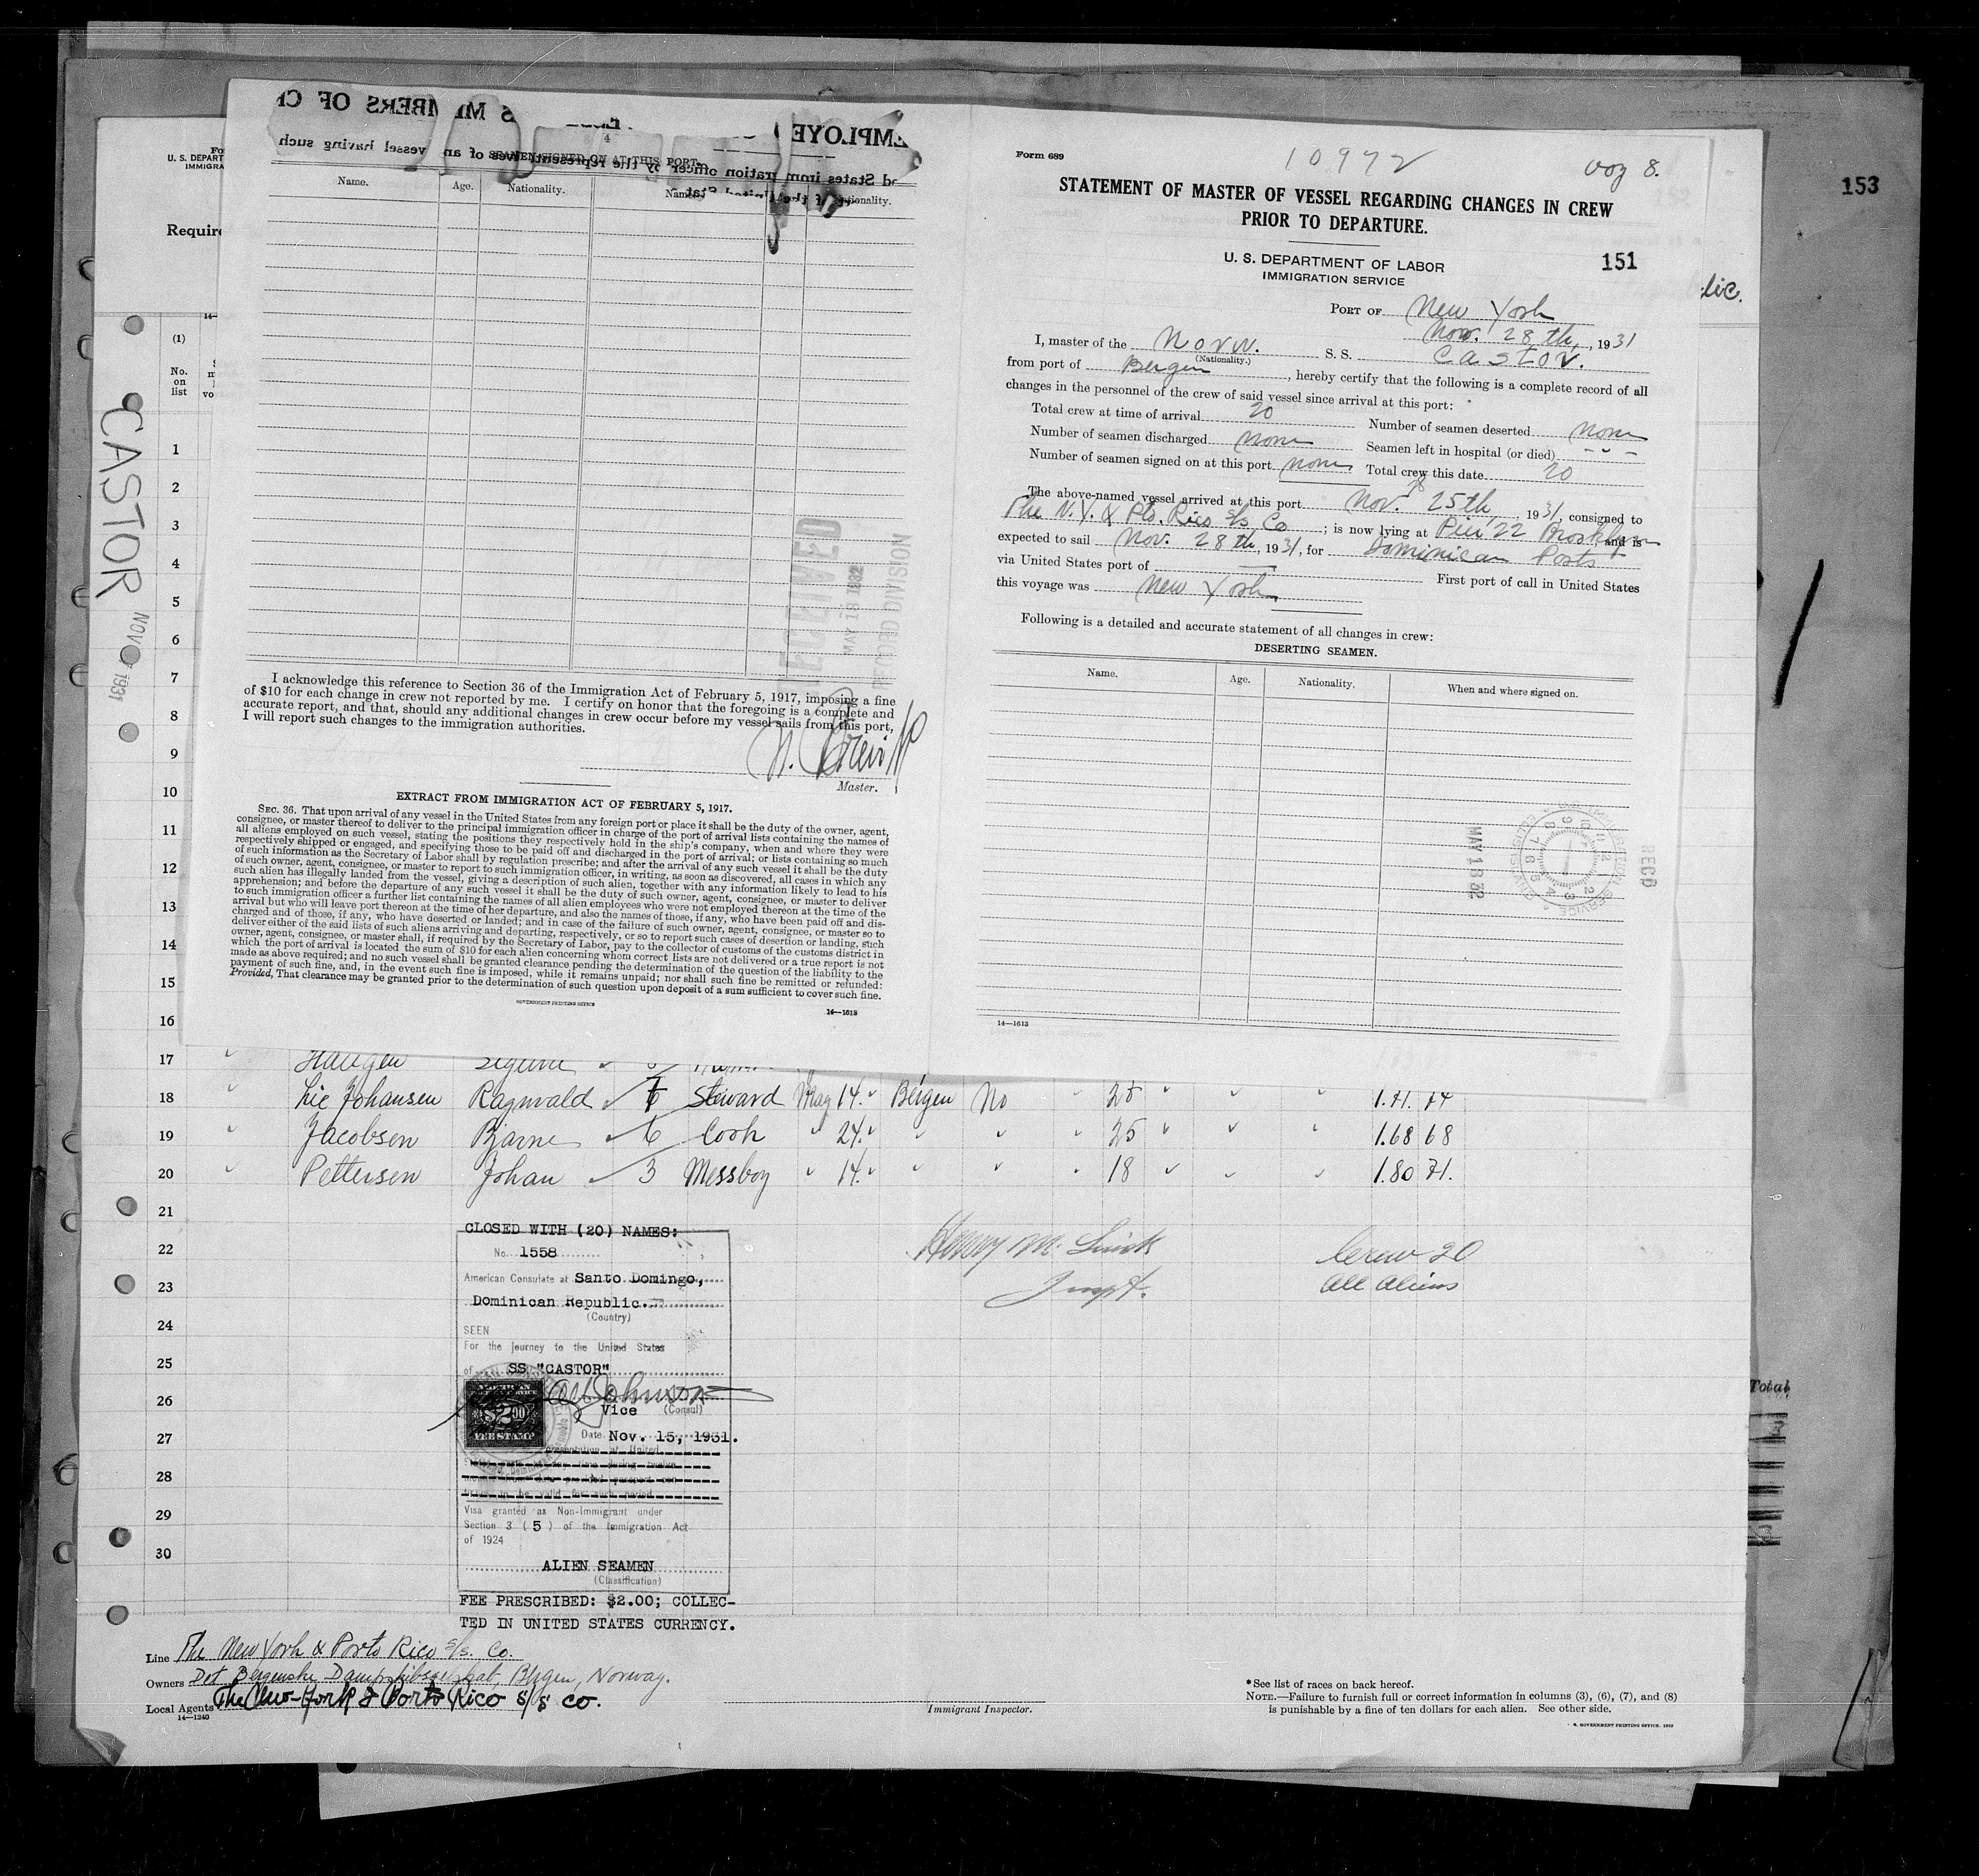 EMPLOYE
MBERS OF C
SEAMEN SIGNED ON AT THIS PORT.
Name. Age. Nationality. Name. Nationality.
RECEIVED
MAY 18 1932
RECORD DIVISION
I acknowledge this reference to Section 36 of the Immigration Act of February 5, 1917, imposing a fine
of $10 for each change in crew not reported by me. I certify on honor that the foregoing is a complete and
accurate report, and that, should any additional changes in crew occur before my vessel sails from this port,
I will report such changes to the immigration authorities.
Master.
EXTRACT FROM IMMIGRATION ACT OF FEBRUARY 5, 1917.
SEC. 36. That upon arrival of any vessel in the United States from any foreign port or place it shall be the duty of the owner, agent,
consignee, or master thereof to deliver to the principal immigration officer in charge of the port of arrival lists containing the names of
all aliens employed on such vessel, stating the positions they respectively hold in the ship's company, when and where they were
respectively shipped or engaged, and specifying those to be paid off and discharged in the port of arrival; or lists containing so much
of such information as the Secretary of Labor shall by regulation prescribe; and after the arrival of any such vessel it shall be the duty
of such owner, agent, consignee, or master to report to such immigration officer, in writing, as soon as discovered, all cases in which any
such alien has illegally landed from the vessel, giving a description of such alien, together with any information likely to lead to his
apprehension; and before the departure of any such vessel it shall be the duty of such owner, agent, consignee, or master to deliver
to such immigration officer a further list containing the names of all alien employees who were not employed thereon at the time of the
arrival but who will leave port thereon at the time of her departure, and also the names of those, if any, who have been paid off and dis-
charged and of those, if any, who have deserted or landed; and in case of the failure of such owner, agent, consignee, or master so to
deliver either of the said lists of such aliens arriving and departing, respectively, or so to report such cases of desertion or landing, such
owner, agent, consignee, or master shall, if required by the Secretary of Labor, pay to the collector of customs of the customs district in
which the port of arrival is located the sum of $10 for each alien concerning whom correct lists are not delivered or a true report is not
made as above required; and no such vessel shall be granted clearance pending the determination of the question of the liability to the
payment of such fine, and, in the event such fine is imposed, while it remains unpaid; nor shall such fine be remitted or refunded:
Provided, That clearance may be granted prior to the determination of such question upon deposit of a sum sufficient to cover such fine.
GOVERNMENT PRINTING OFFICE
14—1613
Form 689
10972
voy 8.
STATEMENT OF MASTER OF VESSEL REGARDING CHANGES IN CREW
PRIOR TO DEPARTURE.
U. S. DEPARTMENT OF LABOR
IMMIGRATION SERVICE
151
PORT OF New York
Nov. 28th, 1931
I, master of the Norw. S. S. Castor.
(Nationality.)
from port of Bergen, hereby certify that the following is a complete record of all
changes in the personnel of the crew of said vessel since arrival at this port:
Total crew at time of arrival 20 Number of seamen deserted none
Number of seamen discharged none Seamen left in hospital (or died) - - -
Number of seamen signed on at this port none Total crew this date 20
The above-named vessel arrived at this port Nov. 25th, 1931, consigned to
The N.Y. & Pto. Rico s/s Co; is now lying at Pier 22 Brooklyn and is
expected to sail Nov. 28th, 1931, for Dominican Ports
via United States port of — First port of call in United States
this voyage was New York
Following is a detailed and accurate statement of all changes in crew:
DESERTING SEAMEN.
Name. Age. Nationality. When and where signed on.
MAY 18 32
RECD
14—1613
153
lic.
U. S. DEPART
IMMIGRA
Require
(1)
No.
on
list
CASTOR
NOV 1931
1
2
3
4
5
6
7
8
9
10
11
12
13
14
15
16
17 Haugen
18 Lie Johansen Ragnvald Steward May 14. Bergen No 25 1.71. 74
19 Jacobsen Bjarne 6 Cook " 24. " " " 25 " " " 1.68 68
20 Pettersen Johan 3 Messboy " 14. " " " 18 " " " 1.80 71.
21
22
23
24
25
26
27
28
29
30
CLOSED WITH (20) NAMES:
No. 1558
American Consulate at Santo Domingo,
Dominican Republic.
(Country)
SEEN
For the journey to the United States
of SS "CASTOR"
AMERICAN
$2.00
FEE STAMP
Vice (Consul)
Date Nov. 15, 1931.
Visa granted as Non-Immigrant under
Section 3 (5) of the Immigration Act
of 1924
ALIEN SEAMEN
(Classification)
FEE PRESCRIBED: $2.00; COLLEC-
TED IN UNITED STATES CURRENCY.
Crew 20
all aliens
Total
Line The New York & Porto Rico s/s. Co.
Owners Det Bergenske Dampskibsselskab, Bergen, Norway.
Local Agents The New-York & Porto Rico s/s co.
14—1240
Immigrant Inspector.
* See list of races on back hereof.
NOTE.—Failure to furnish full or correct information in columns (3), (6), (7), and (8)
is punishable by a fine of ten dollars for each alien. See other side.